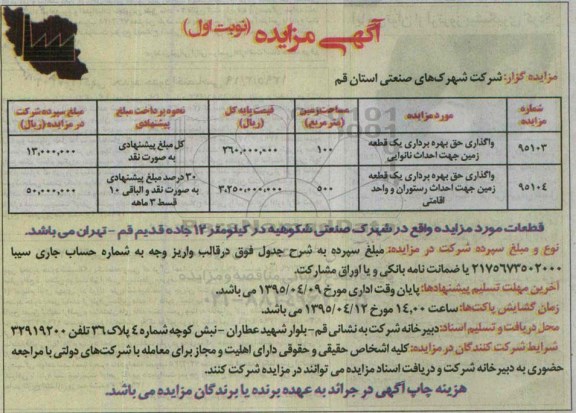 آگهی مزایده (نوبت اول)
مزایده گزار: شرکت شهرک‌های صنعتی استان قم
شماره مزایده	مورد مزایده	مساحت زمین (متر مربع)	قیمت پایه کل (ریال)	نحوه پرداخت مبلغ پیشنهادی	مبلغ سپرده شرکت در مزایده (ریال)
۹۵۱۰۳	واگذاری حق بهره برداری یک قطعه زمین جهت احداث نانوایی	۱۰۰	۳۶۰,۰۰۰,۰۰۰	کل مبلغ پیشنهادی به صورت نقد	۱۳,۰۰۰,۰۰۰
۹۵۱۰۴	واگذاری حق بهره برداری یک قطعه زمین جهت احداث رستوران و واحد اقامتی	۵۰۰	۳,۲۵۰,۰۰۰,۰۰۰	۳۰ درصد مبلغ پیشنهادی به صورت نقد و الباقی ۱۰ قسط ۳ ماهه	۵۰,۰۰۰,۰۰۰
قطعات مورد مزایده واقع در شهرک صنعتی شکوهیه در کیلومتر ۱۲ جاده قدیم قم - تهران می باشد.
نوع و مبلغ سپرده شرکت در مزایده: مبلغ سپرده به شرح جدول فوق درقالب واریز وجه به شماره حساب جاری سیبا
۲۱۷۵۶۷۳۵۰۲۰۰۰ یا ضمانت نامه بانکی و یا اوراق مشارکت.
آخرین مهلت تسلیم پیشنهادها: پایان وقت اداری مورخ ۱۳۹۵/۰۴/۰۹ می باشد.
زمان گشایش پاکت‌ها: ساعت ۱۴,۰۰ مورخ ۱۳۹۵/۰۴/۱۲ می باشد.
محل دریافت و تسلیم اسناد: دبیرخانه شرکت به نشانی قم - بلوار شهید عطاران - نبش کوچه شماره ۴ پلاک ۳۶ تلفن ۳۲۹۱۹۲۰۰
شرایط شرکت کنندگان در مزایده: کلیه اشخاص حقیقی و حقوقی دارای اهلیت و مجاز برای معامله با شرکت‌های دولتی با مراجعه
حضوری به دبیرخانه شرکت و دریافت اسناد مزایده می توانند در مزایده شرکت کنند.
هزینه چاپ آگهی در جرائد به عهده برنده یا برندگان مزایده می باشد.